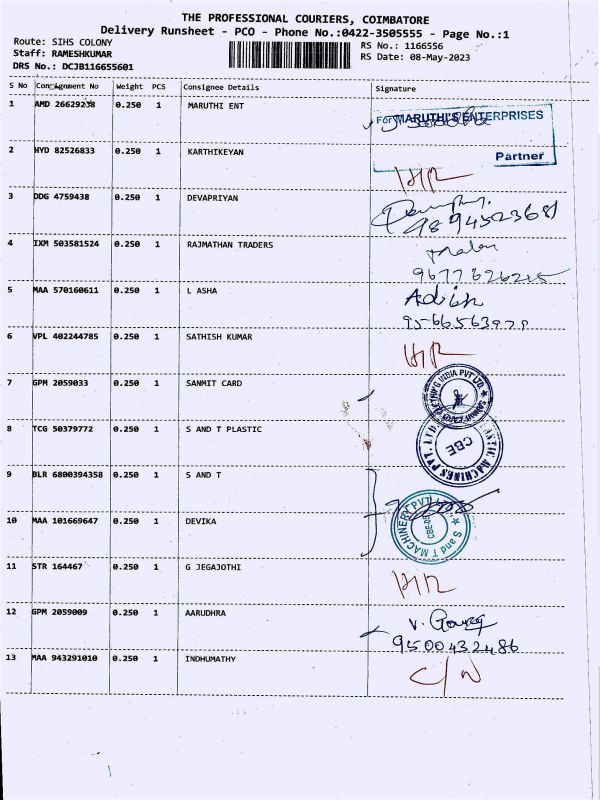 THE PROFESSIONAL COURIERS, COIMBATORE
Delivery Runsheet - PCO - Phone No.:0422-3505555 - Page No.:1
Route: SIHS COLONY
Staff: RAMESHKUMAR
DRS No.: DCJB116655601
RS No.: 1166556
RS Date: 08-May-2023
S No Consignment No Weight PCS Consignee Details Signature
1 AMD 26629238 0.250 1 MARUTHI ENT
For MARUTHI'S ENTERPRISES
Partner
2 HYD 82526833 0.250 1 KARTHIKEYAN
3 DDG 4759438 0.250 1 DEVAPRIYAN
9894523681
4 IXM 503581524 0.250 1 RAJMATHAN TRADERS
5 MAA 570160611 0.250 1 L ASHA
6 VPL 402244785 0.250 1 SATHISH KUMAR
7 GPM 2059033 0.250 1 SANMIT CARD
8 TCG 50379772 0.250 1 S AND T PLASTIC
CBE
9 BLR 6800394358 0.250 1 S AND T
10 MAA 101669647 0.250 1 DEVIKA
S and T MACHINERY PVT
11 STR 164467 0.250 1 G JEGAJOTHI
12 GPM 2059009 0.250 1 AARUDHRA
9500432486
13 MAA 943291010 0.250 1 INDHUMATHY
C/N